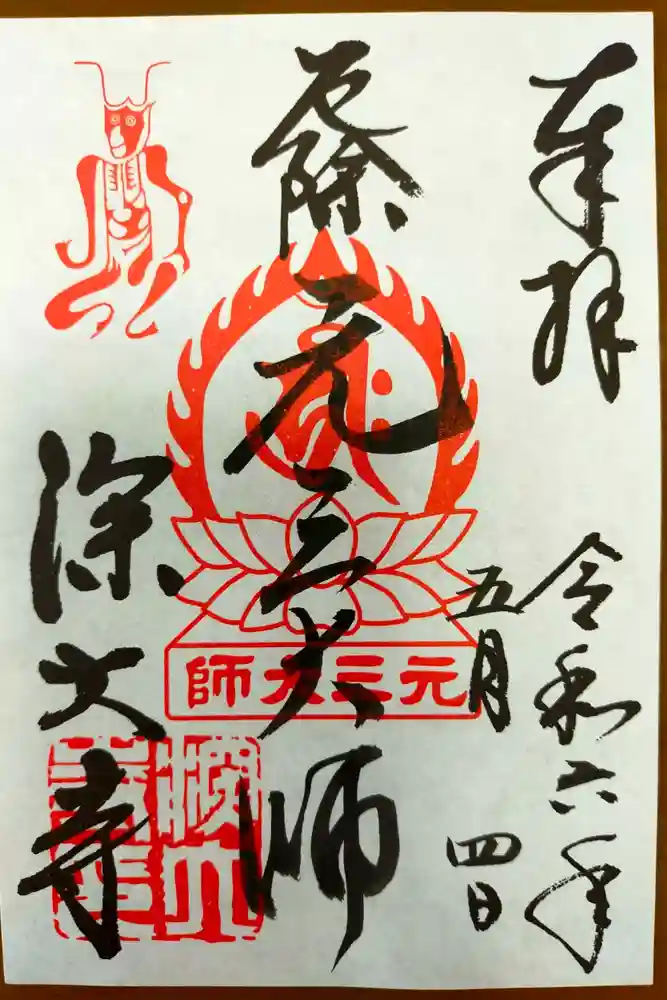 奉拝
令和六年
五月四日
厄除元三大師
元三大師
深大寺